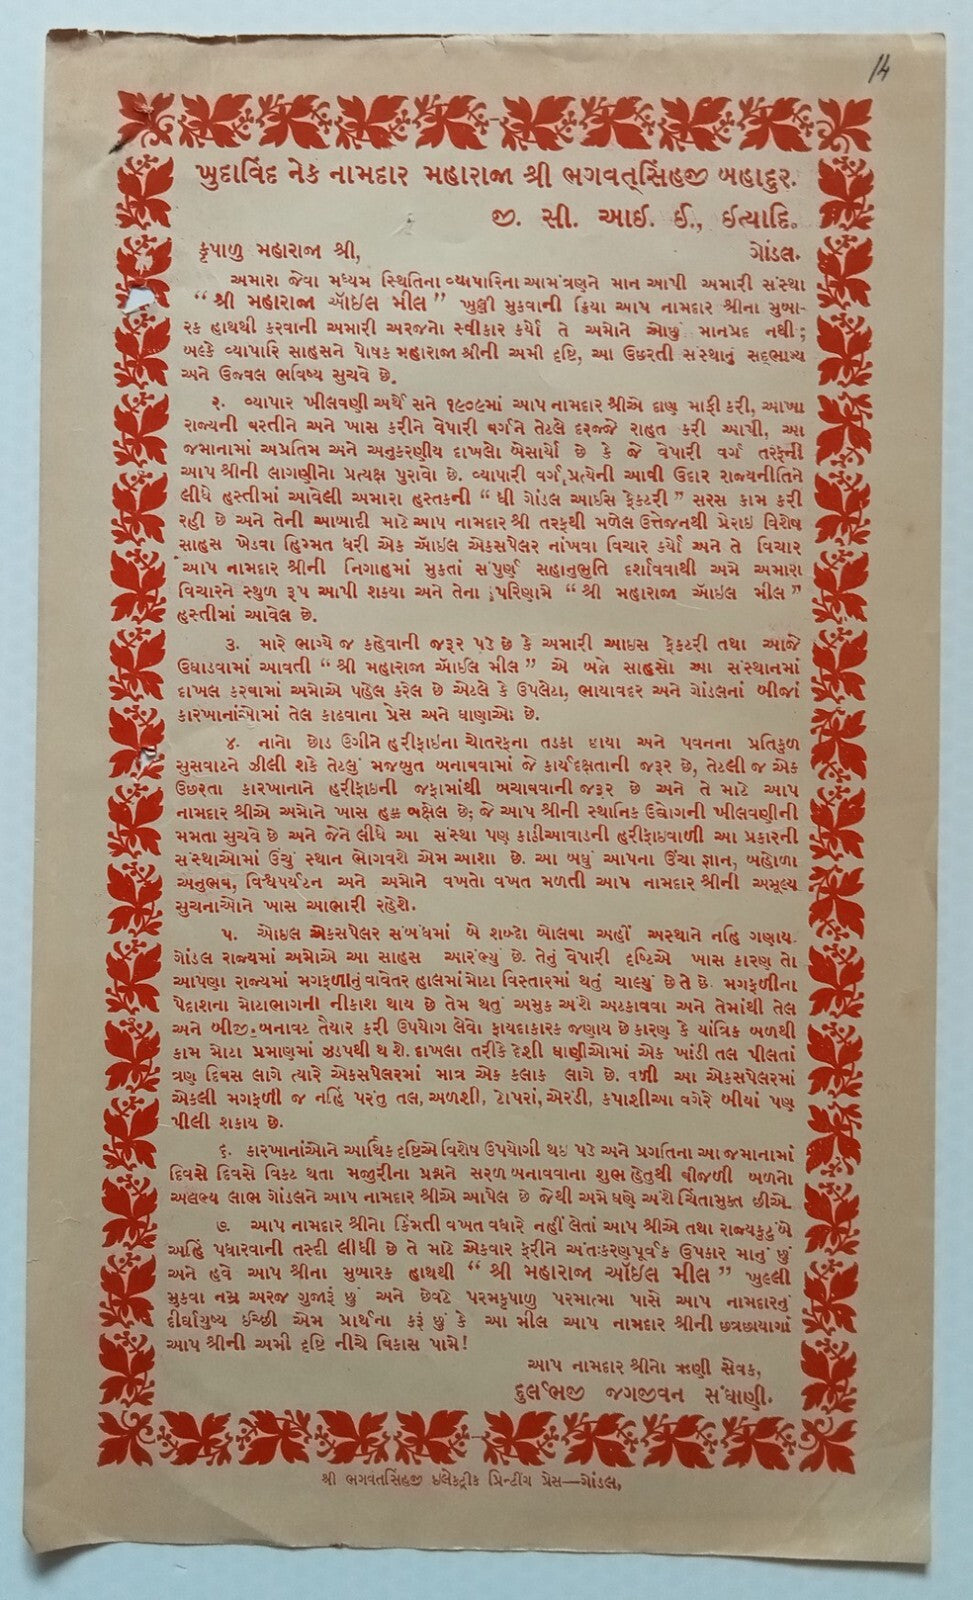 14
ખુદાવિંદ નેક નામદાર મહારાજા શ્રી ભગવત્સિંહજી બહાદુર.
જી. સી. આઈ. ઈ., ઈત્યાદિ.
કૃપાળુ મહારાજા શ્રી,
ગોંડલ.
અમારા જેવા મધ્યમ સ્થિતિના વ્યાપારિના આમંત્રણને માન આપી અમારી સંસ્થા
“ શ્રી મહારાજા ઑઇલ મીલ ” ખુલ્લી મુકવાની ક્રિયા આપ નામદાર શ્રીના મુબા-
રક હાથથી કરવાની અમારી અરજનો સ્વીકાર કર્યો તે અમોને ઓછું માનપ્રદ નથી ;
બલ્કે વ્યાપારિ સાહસને પોષક મહારાજા શ્રીની અમી દૃષ્ટિ, આ ઉછરતી સંસ્થાનું સદ્ભાગ્ય
અને ઉજવલ ભવિષ્ય સુચવે છે.
૨. વ્યાપાર ખીલવણી અર્થે સને ૧૯૦૯માં આપ નામદાર શ્રીએ દાણ માફી કરી, આખા
રાજ્યની વસ્તીને અને ખાસ કરીને વેપારી વર્ગને તેટલે દરજ્જે રાહત કરી આપી, આ
જમાનામાં અપ્રતિમ અને અનુકરણીય દાખલો બેસાર્યો છે કે જે વેપારી વર્ગ તરફની
આપ શ્રીની લાગણીનો પ્રત્યક્ષ પુરાવો છે. વ્યાપારી વર્ગ પ્રત્યેની આવી ઉદાર રાજ્યનીતિને
લીધે હસ્તીમાં આવેલી અમારા હસ્તકની “ ધી ગોંડલ આઇસ ફેક્ટરી ” સરસ કામ કરી
રહી છે અને તેની આબાદી માટે આપ નામદાર શ્રી તરફથી મળેલ ઉત્તેજનથી પ્રેરાઇ વિશેષ
સાહસ ખેડવા હિમ્મત ધરી એક ઑઇલ એક્સપેલર નાંખવા વિચાર કર્યો અને તે વિચાર
આપ નામદાર શ્રીની નિગાહમાં મુકતાં સંપુર્ણ સહાનુભુતિ દર્શાવવાથી અમે અમારા
વિચારને સ્થુળ રૂપ આપી શક્યા અને તેના પરિણામે “ શ્રી મહારાજા ઑઇલ મીલ ”
હસ્તીમાં આવેલ છે.
૩. મારે ભાગ્યે જ કહેવાની જરૂર પડે છે કે અમારી આઇસ ફેક્ટરી તથા આજે
ઉઘાડવામાં આવતી “ શ્રી મહારાજા ઑઇલ મીલ ” એ બન્ને સાહસો આ સંસ્થાનમાં
દાખલ કરવામાં અમોએ પહેલ કરેલ છે એટલે કે ઉપલેટા, ભાયાવદર અને ગોંડલનાં બીજાં
કારખાનાંઓમાં તેલ કાઢવાના પ્રેસ અને ઘાણાઓ છે.
૪. નાનો છોડ ઉગીને હરીફાઇના ચોતરફના તડકા છાયા અને પવનના પ્રતિકુળ
સુસવાટને ઝીલી શકે તેટલું મજબુત બનાવવામાં જે કાર્યદક્ષતાની જરૂર છે, તેટલી જ એક
ઉછરતા કારખાનાને હરીફાઇની જફામાંથી બચાવવાની જરૂર છે અને તે માટે આપ
નામદાર શ્રીએ અમોને ખાસ હક્ક બક્ષેલ છે; જે આપ શ્રીની સ્થાનિક ઉદ્યોગની ખીલવણીની
મમતા સુચવે છે અને જેને લીધે આ સંસ્થા પણ કાઠીઆવાડની હરીફાઇવાળી આ પ્રકારની
સંસ્થાઓમાં ઉંચું સ્થાન ભોગવશે એમ આશા છે. આ બધું આપના ઉંચા જ્ઞાન, બહોળા
અનુભવ, વિશ્વપર્યટન અને અમોને વખતો વખત મળતી આપ નામદાર શ્રીની અમૂલ્ય
સુચનાઓને ખાસ આભારી રહેશે.
૫. ઑઇલ એક્સપેલર સંબંધમાં બે શબ્દો બોલવા અહીં અસ્થાને નહિ ગણાય.
ગોંડલ રાજ્યમાં અમોએ આ સાહસ આરંભ્યું છે. તેનું વેપારી દૃષ્ટિએ ખાસ કારણ તો
આપણા રાજ્યમાં મગફળીનું વાવેતર હાલમાં મોટા વિસ્તારમાં થતું ચાલ્યું છે તે છે. મગફળીના
પેદાશના મોટાભાગની નીકાશ થાય છે તેમ થતું અમુક અંશે અટકાવવા અને તેમાંથી તેલ
અને બીજી બનાવટ તૈયાર કરી ઉપયોગ લેવો ફાયદાકારક જણાય છે કારણ કે યાંત્રિક બળથી
કામ મોટા પ્રમાણમાં ઝડપથી થશે. દાખલા તરીકે દેશી ઘાણીઓમાં એક ખાંડી તલ પીલતાં
ત્રણ દિવસ લાગે ત્યારે એક્સપેલરમાં માત્ર એક કલાક લાગે છે. વળી આ એક્સપેલરમાં
એકલી મગફળી જ નહિં પરંતુ તલ, અળશી, ટોપરાં, એરંડી, કપાશીઆ વગેરે બીયાં પણ
પીલી શકાય છે.
૬. કારખાનાંઓને આર્થિક દૃષ્ટિએ વિશેષ ઉપયોગી થઇ પડે અને પ્રગતિના આ જમાનામાં
દિવસે દિવસે વિકટ થતા મજુરીના પ્રશ્નને સરળ બનાવવાના શુભ હેતુથી વીજળી બળનો
અલભ્ય લાભ ગોંડલને આપ નામદાર શ્રીએ આપેલ છે જેથી અમે ઘણે અંશે ચિંતામુક્ત છીએ.
૭. આપ નામદાર શ્રીનો કિંમતી વખત વધારે નહીં લેતાં આપ શ્રીએ તથા રાજ્યકુટુંબે
અહિં પધારવાની તસ્દી લીધી છે તે માટે એકવાર ફરીને અંતઃકરણપૂર્વક ઉપકાર માનું છું
અને હવે આપ શ્રીના મુબારક હાથથી “ શ્રી મહારાજા ઑઇલ મીલ ” ખુલ્લી
મુકવા નમ્ર અરજ ગુજારૂં છું અને છેવટે પરમકૃપાળુ પરમાત્મા પાસે આપ નામદારનું
દીર્ઘાયુષ્ય ઈચ્છી એમ પ્રાર્થના કરૂં છું કે આ મીલ આપ નામદાર શ્રીની છત્રછાયામાં
આપ શ્રીની અમી દૃષ્ટિ નીચે વિકાસ પામે!
આપ નામદાર શ્રીનો ઋણી સેવક,
દુર્લભજી જગજીવન સંઘાણી.
શ્રી ભગવતસિંહજી ઇલેક્ટ્રીક પ્રિન્ટીંગ પ્રેસ—ગોંડલ,